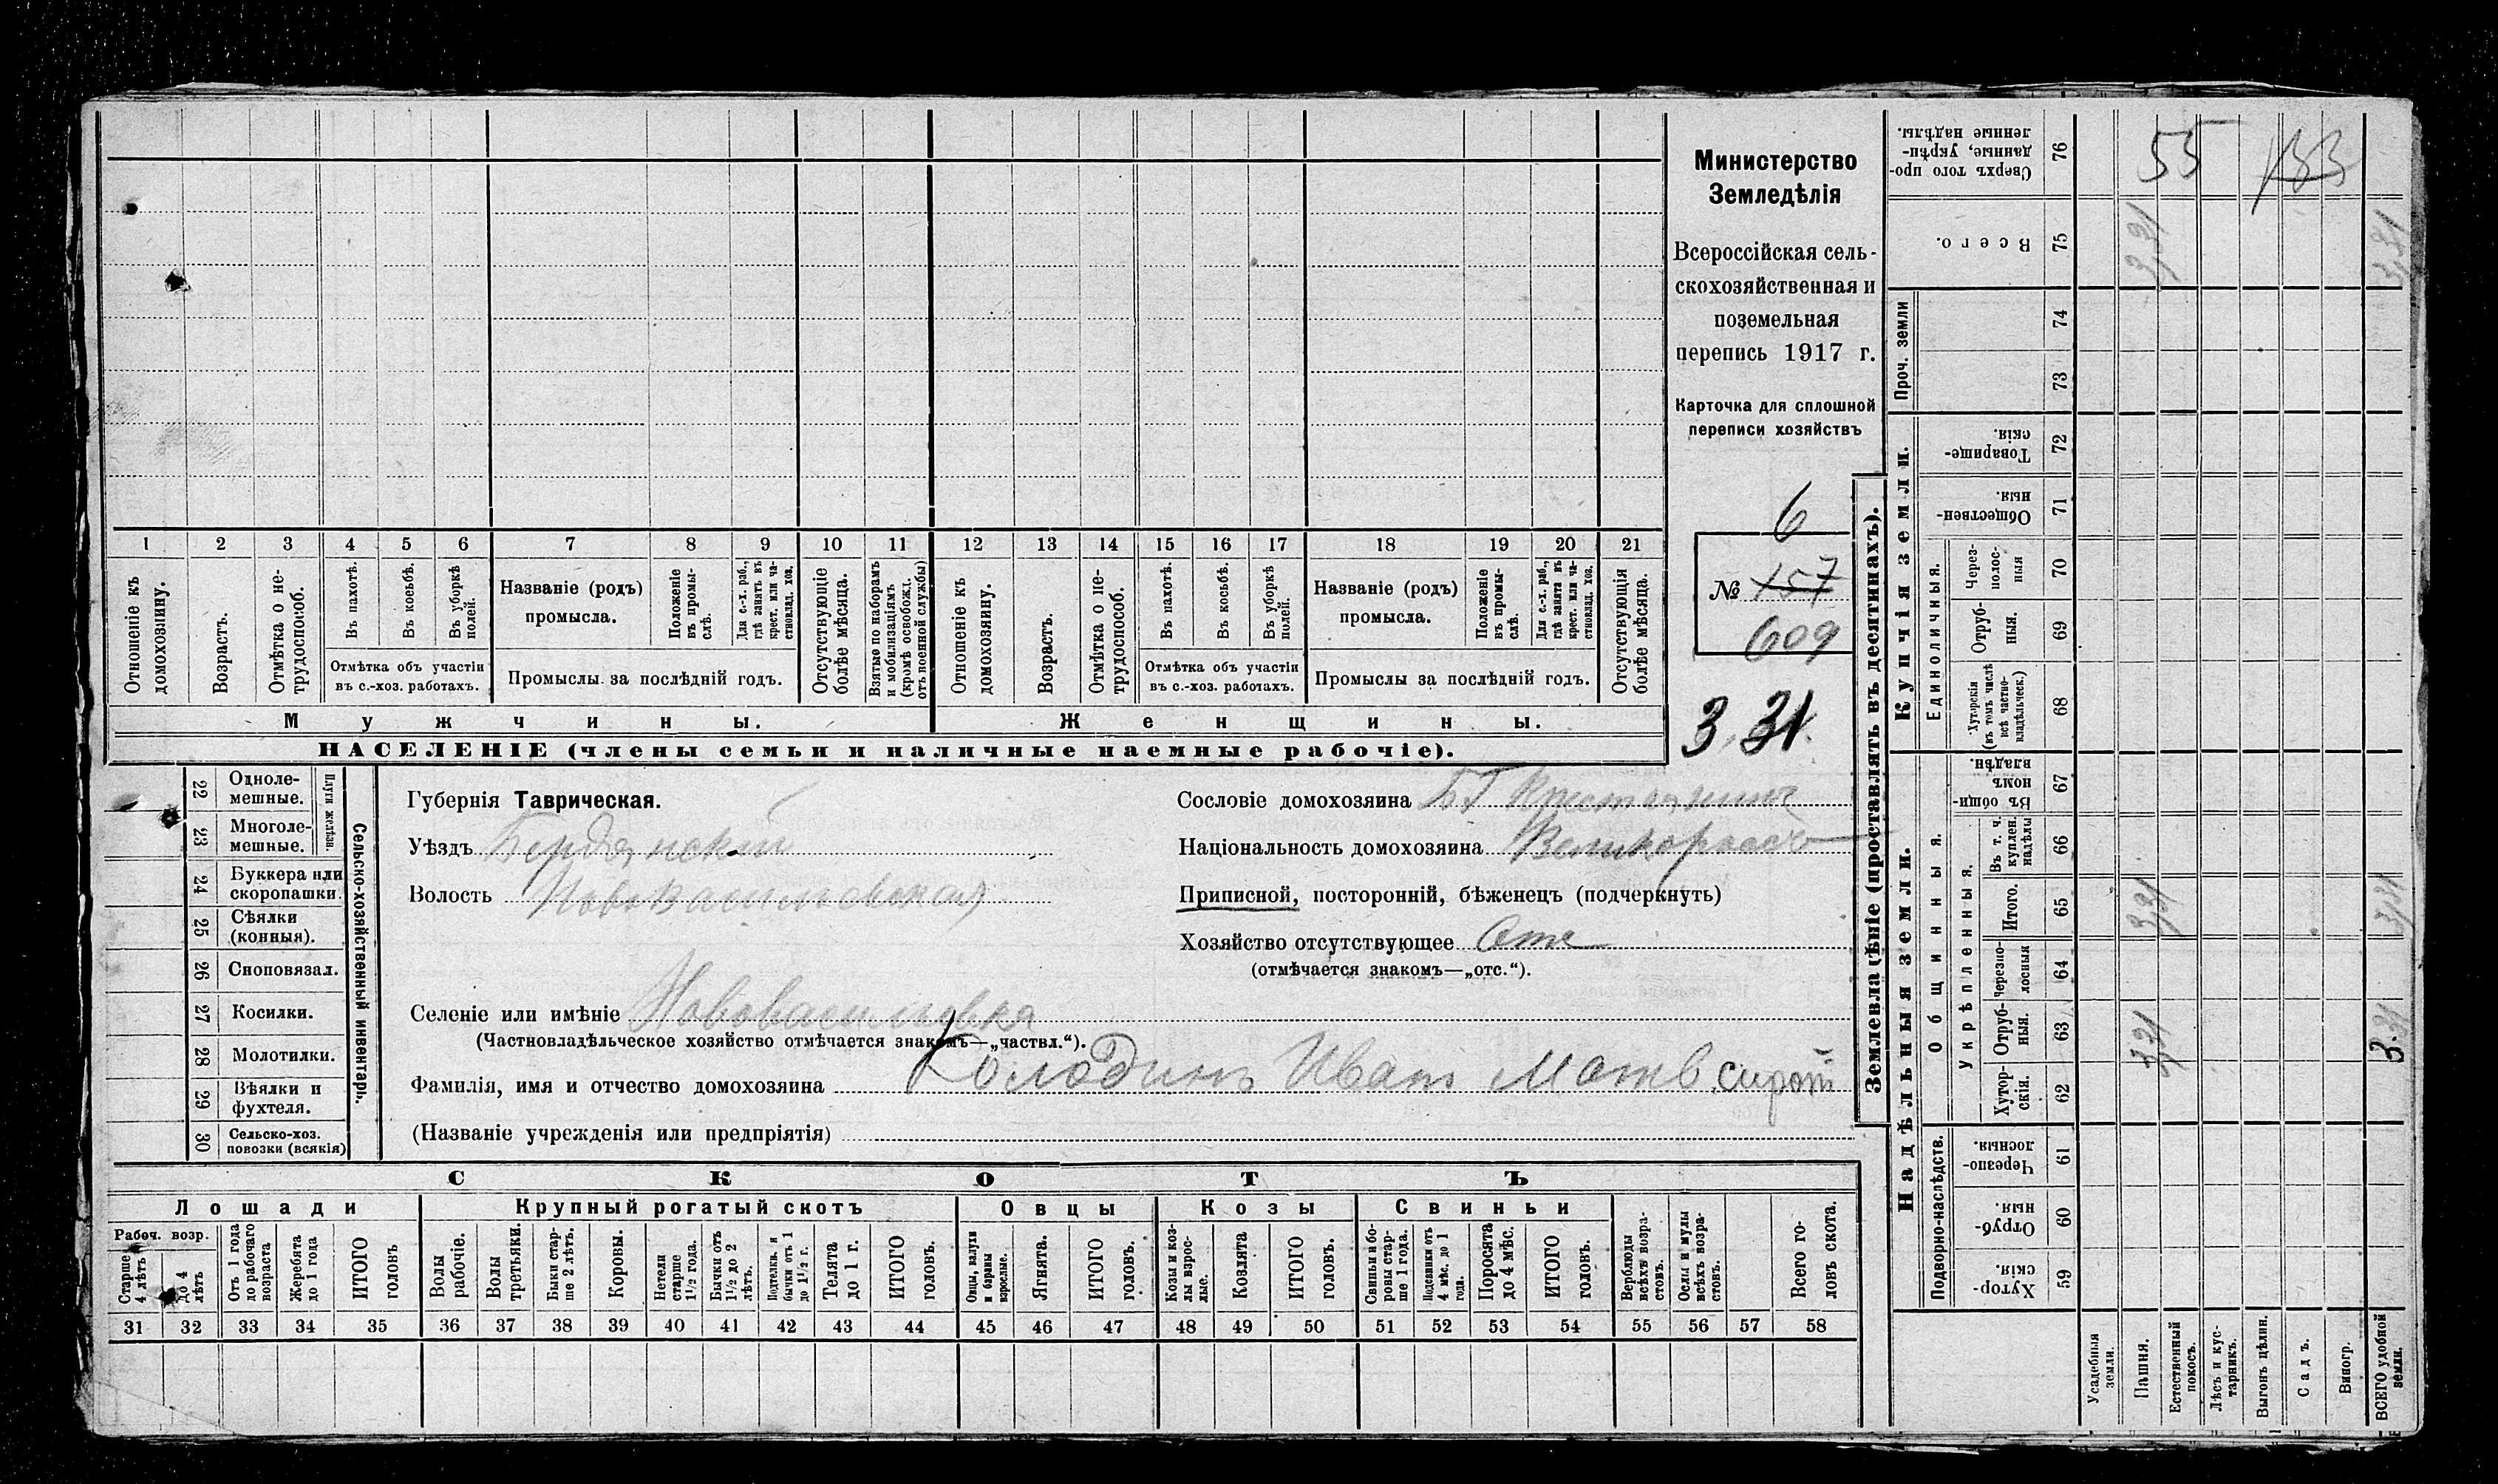 1 2 3 4 5 6 7 8 9 10 11 12 13 14 15 16 17 18 19 20 21
Отношеніе къ домохозяину.
Возрастъ.
Отмѣтка о не-
трудоспособ.
Въ пахотѣ.
Въ косьбѣ.
Въ уборкѣ
полей.
Отмѣтка объ участіи
въ с.-хоз. работахъ.
Названіе (родъ)
промысла.
Положеніе
въ промы-
слѣ.
Для с.-х. раб.,
гдѣ занятъ въ
крест. или ча-
стновлад. хоз.
Промыслы за послѣдній годъ.
Отсутствующіе
болѣе мѣсяца.
Взятые по наборамъ
и мобилизаціямъ
(кромѣ освобожд.
отъ военной службы)
Отношеніе къ
домохозяину.
Возрастъ.
Отмѣтка о не-
трудоспособ.
Въ пахотѣ.
Въ косьбѣ.
Въ уборкѣ
полей.
Отмѣтка объ участіи
въ с.-хоз. работахъ.
Названіе (родъ)
промысла.
Положеніе
въ промы-
слѣ.
Для с.-х. раб.,
гдѣ занята въ
крест. или ча-
стновлад. хоз.
Промыслы за послѣдній годъ.
Отсутствующія
болѣе мѣсяца.
Мужчины.
Женщины.
НАСЕЛЕНІЕ (члены семьи и наличные наемные рабочіе).
Министерство
Земледѣлія
Всероссійская сель-
скохозяйственная и
поземельная
перепись 1917 г.
Карточка для сплошной
переписи хозяйствъ
6
№ 157
609
3.31
22 Одноле-
мешные.
23 Многоле-
мешные.
Плуги желѣзн.
24 Буккера или
скоропашки.
25 Сѣялки
(конныя).
26 Сноповязал.
27 Косилки.
28 Молотилки.
29 Вѣялки и
фухтеля.
30 Сельско-хоз.
повозки (всякія)
Сельско-хозяйственный инвентарь.
Губернія Таврическая.
Уѣздъ Бердянскій
Волость Нововасильевская
Селеніе или имѣніе Нововасильевка
(Частновладѣльческое хозяйство отмѣчается знакомъ—„частвл.“).
Фамилія, имя и отчество домохозяина Колодинъ Иванъ Матв сирот
(Названіе учрежденія или предпріятія)
Сословіе домохозяина БГ Крестьянинъ
Національность домохозяина Великороссъ
Приписной, посторонній, бѣженецъ (подчеркнуть)
Хозяйство отсутствующее Отс
(отмѣчается знакомъ—„отс.“).
СКОТЪ
Лошади
Рабоч. возр.
Старше
4 лѣтъ
до 4
лѣтъ
Отъ 1 года
до рабочаго
возраста
Жеребята
до 1 года
ИТОГО
головъ
Крупный рогатый скотъ
Волы
рабочіе.
Волы
третьяки.
Быки стар-
ше 2 лѣтъ.
Коровы.
Нетели
старше
1 1/2 года.
Бычки отъ
1 1/2 до 2
лѣтъ.
Подтелки. и
бычки отъ 1
до 1 1/2 г.
Телята
до 1 г.
ИТОГО
головъ.
Овцы
Овцы, валухи
и бараны
взрослые.
Ягнята.
ИТОГО
головъ.
Козы
Козы и коз-
лы взрос-
лые.
Козлята
ИТОГО
головъ.
Свиньи
Свиньи и бо-
ровы стар-
ше 1 года.
Подсвинки отъ
4 мѣс. до 1
года.
Поросята
до 4 мѣс.
ИТОГО
головъ.
Верблюды
всѣхъ возра-
стовъ.
Ослы и мулы
всѣхъ возра-
стовъ.
Всего го-
ловъ скота.
31 32 33 34 35 36 37 38 39 40 41 42 43 44 45 46 47 48 49 50 51 52 53 54 55 56 57 58
Землевладѣніе (проставлять въ десятинахъ).
Купчія земли.
Надѣльныя земли.
Сверхъ того про-
данные, укрѣп-
ленные надѣлы.
76
55
133
Всего.
75
3,31
3,31
Проч. земли
74
73
Товарище-
скія.
72
Обществен-
ныя.
71
Единоличныя.
Через-
полос-
ныя
70
Отруб-
ныя.
69
Хуторскія
(въ томъ числѣ
всѣ частно-
владѣльческ.)
68
Общинныя.
Въ общин-
номъ
владѣн.
67
Укрѣпленныя.
Въ т. ч.
куплен.
надѣлы
66
Итого.
65
3,31
3,31
Черезпо-
лосныя
64
Отруб-
ныя.
63
3,31
3.31
Хутор-
скія.
62
Подворно-наслѣдств.
Черезпо-
лосныя.
61
Отруб-
ныя.
60
Хутор-
скія.
59
Усадебныя
земли.
Пашня.
Естественный
покосъ.
Лѣсъ и кус-
тарникъ.
Выгонъ цѣлин.
Садъ.
Виногр.
ВСЕГО удобной
земли.